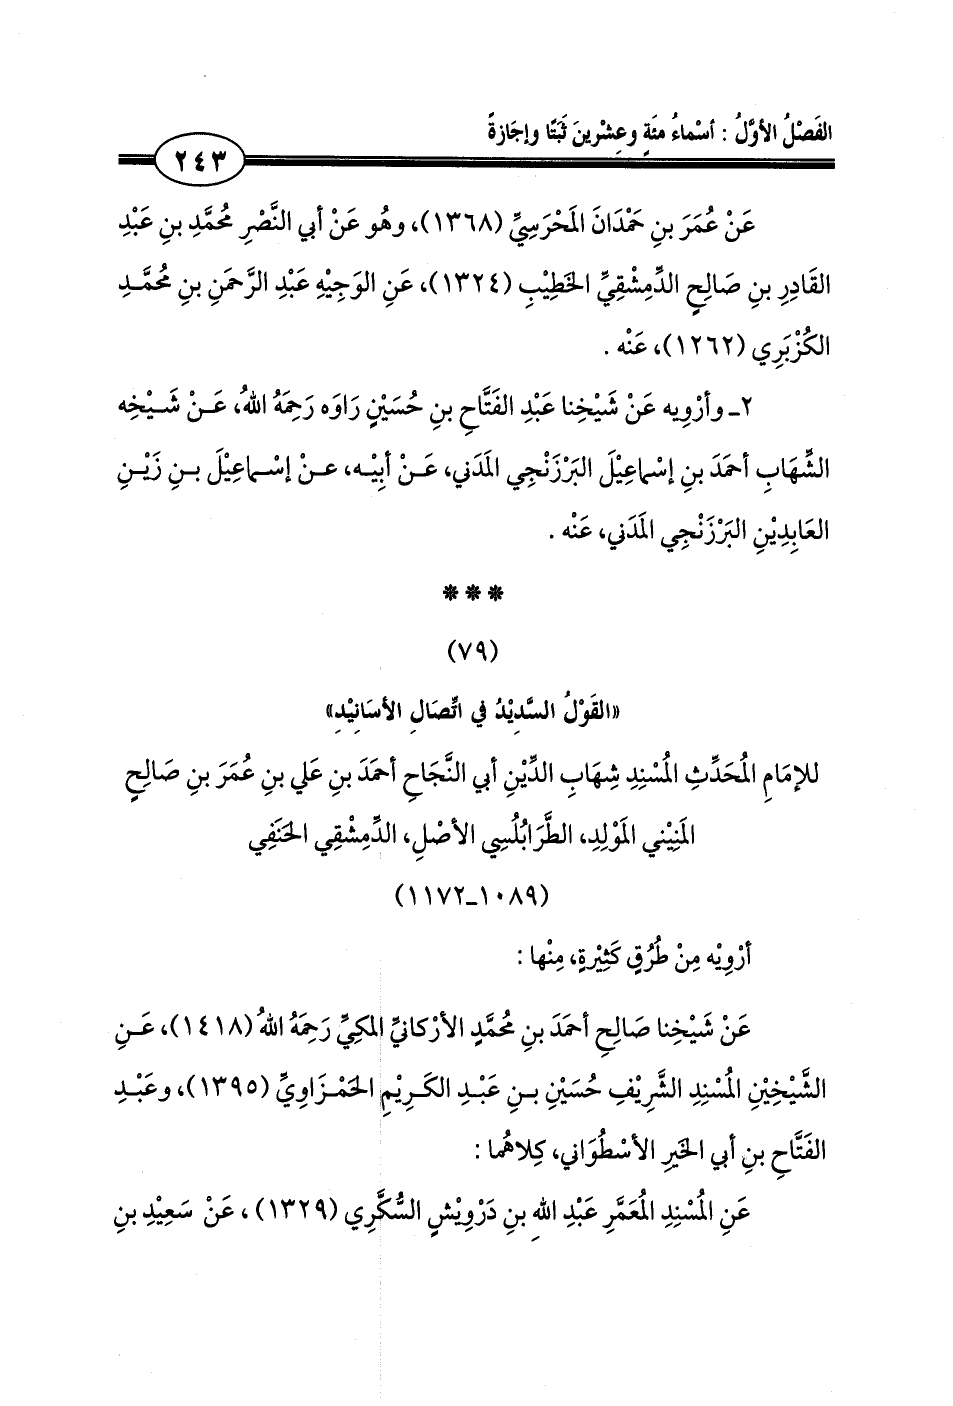 الفَصْلُ الأوَّلُ : أسْماءُ مئَةٍ وعِشْرينَ ثَبَتًا وإجَازةً
٢٤٣
عَنْ عُمَرَ بنِ حَمْدَانَ المَحْرَسِيِّ (١٣٦٨)، وهُو عَنْ أبي النَّصْرِ مُحمَّدِ بنِ عَبْدِ
القَادِرِ بنِ صَالِحٍ الدِّمشْقِيِّ الخَطِيْبِ (١٣٢٤)، عَنِ الوَجِيْهِ عَبْدِ الرَّحمَنِ بنِ مُحمَّـدٍ
الكُزْبَرِي (١٢٦٢)، عَنْه .
٢ـ وأرْوِيه عَنْ شَيْخِنا عَبْدِ الفَتَّاحِ بنِ حُسَيْنٍ رَاوَه رَحِمَهُ اللهُ، عَـنْ شَـيْخِه
الشِّهَابِ أحمَدَ بنِ إسْماعِيْلَ البَرْزَنْجِي المَدَني، عَـنْ أبِيْـه، عـنْ إسْـماعِيْلَ بـنِ زَيْـنِ
العَابِدِيْنِ البَرْزَنْجِي المَدَني، عَنْه .
* * *
(٧٩)
«القَوْلُ السَّدِيْدُ في اتِّصَالِ الأسَانِيْدِ»
للإمَامِ المُحَدِّثِ المُسْنِدِ شِهَابِ الدِّيْنِ أبي النَّجَاحِ أحمَدَ بنِ عَلي بنِ عُمَرَ بنِ صَالِحٍ
المَنِيْني المَوْلِدِ، الطَّرَابُلُسِي الأصْلِ، الدِّمشْقِي الحَنَفِي
(١٠٨٩ـ١١٧٢)
أرْوِيْه مِنْ طُرُقٍ كَثِيْرةٍ، مِنْها :
عَنْ شَيْخِنا صَالِحِ أحمَدَ بنِ مُحمَّدٍ الأرْكانيِّ المكِيِّ رَحِمَهُ اللهُ (١٤١٨)، عَـنِ
الشَّيْخِيْنِ المُسْنِدِ الشَّرِيْفِ حُسَيْنِ بـنِ عَبْـدِ الكَـرِيْمِ الحَمْـزَاوِيِّ (١٣٩٥)، وعَبْـدِ
الفَتَّاحِ بنِ أبي الخَيرِ الأسْطُوَاني، كِلاهُما :
عَنِ المُسْنِدِ المُعَمَّرِ عَبْدِ اللهِ بنِ دَرْوِيْشٍ السُّكَّرِي (١٣٢٩) ، عَنْ سَعِيْدِ بنِ